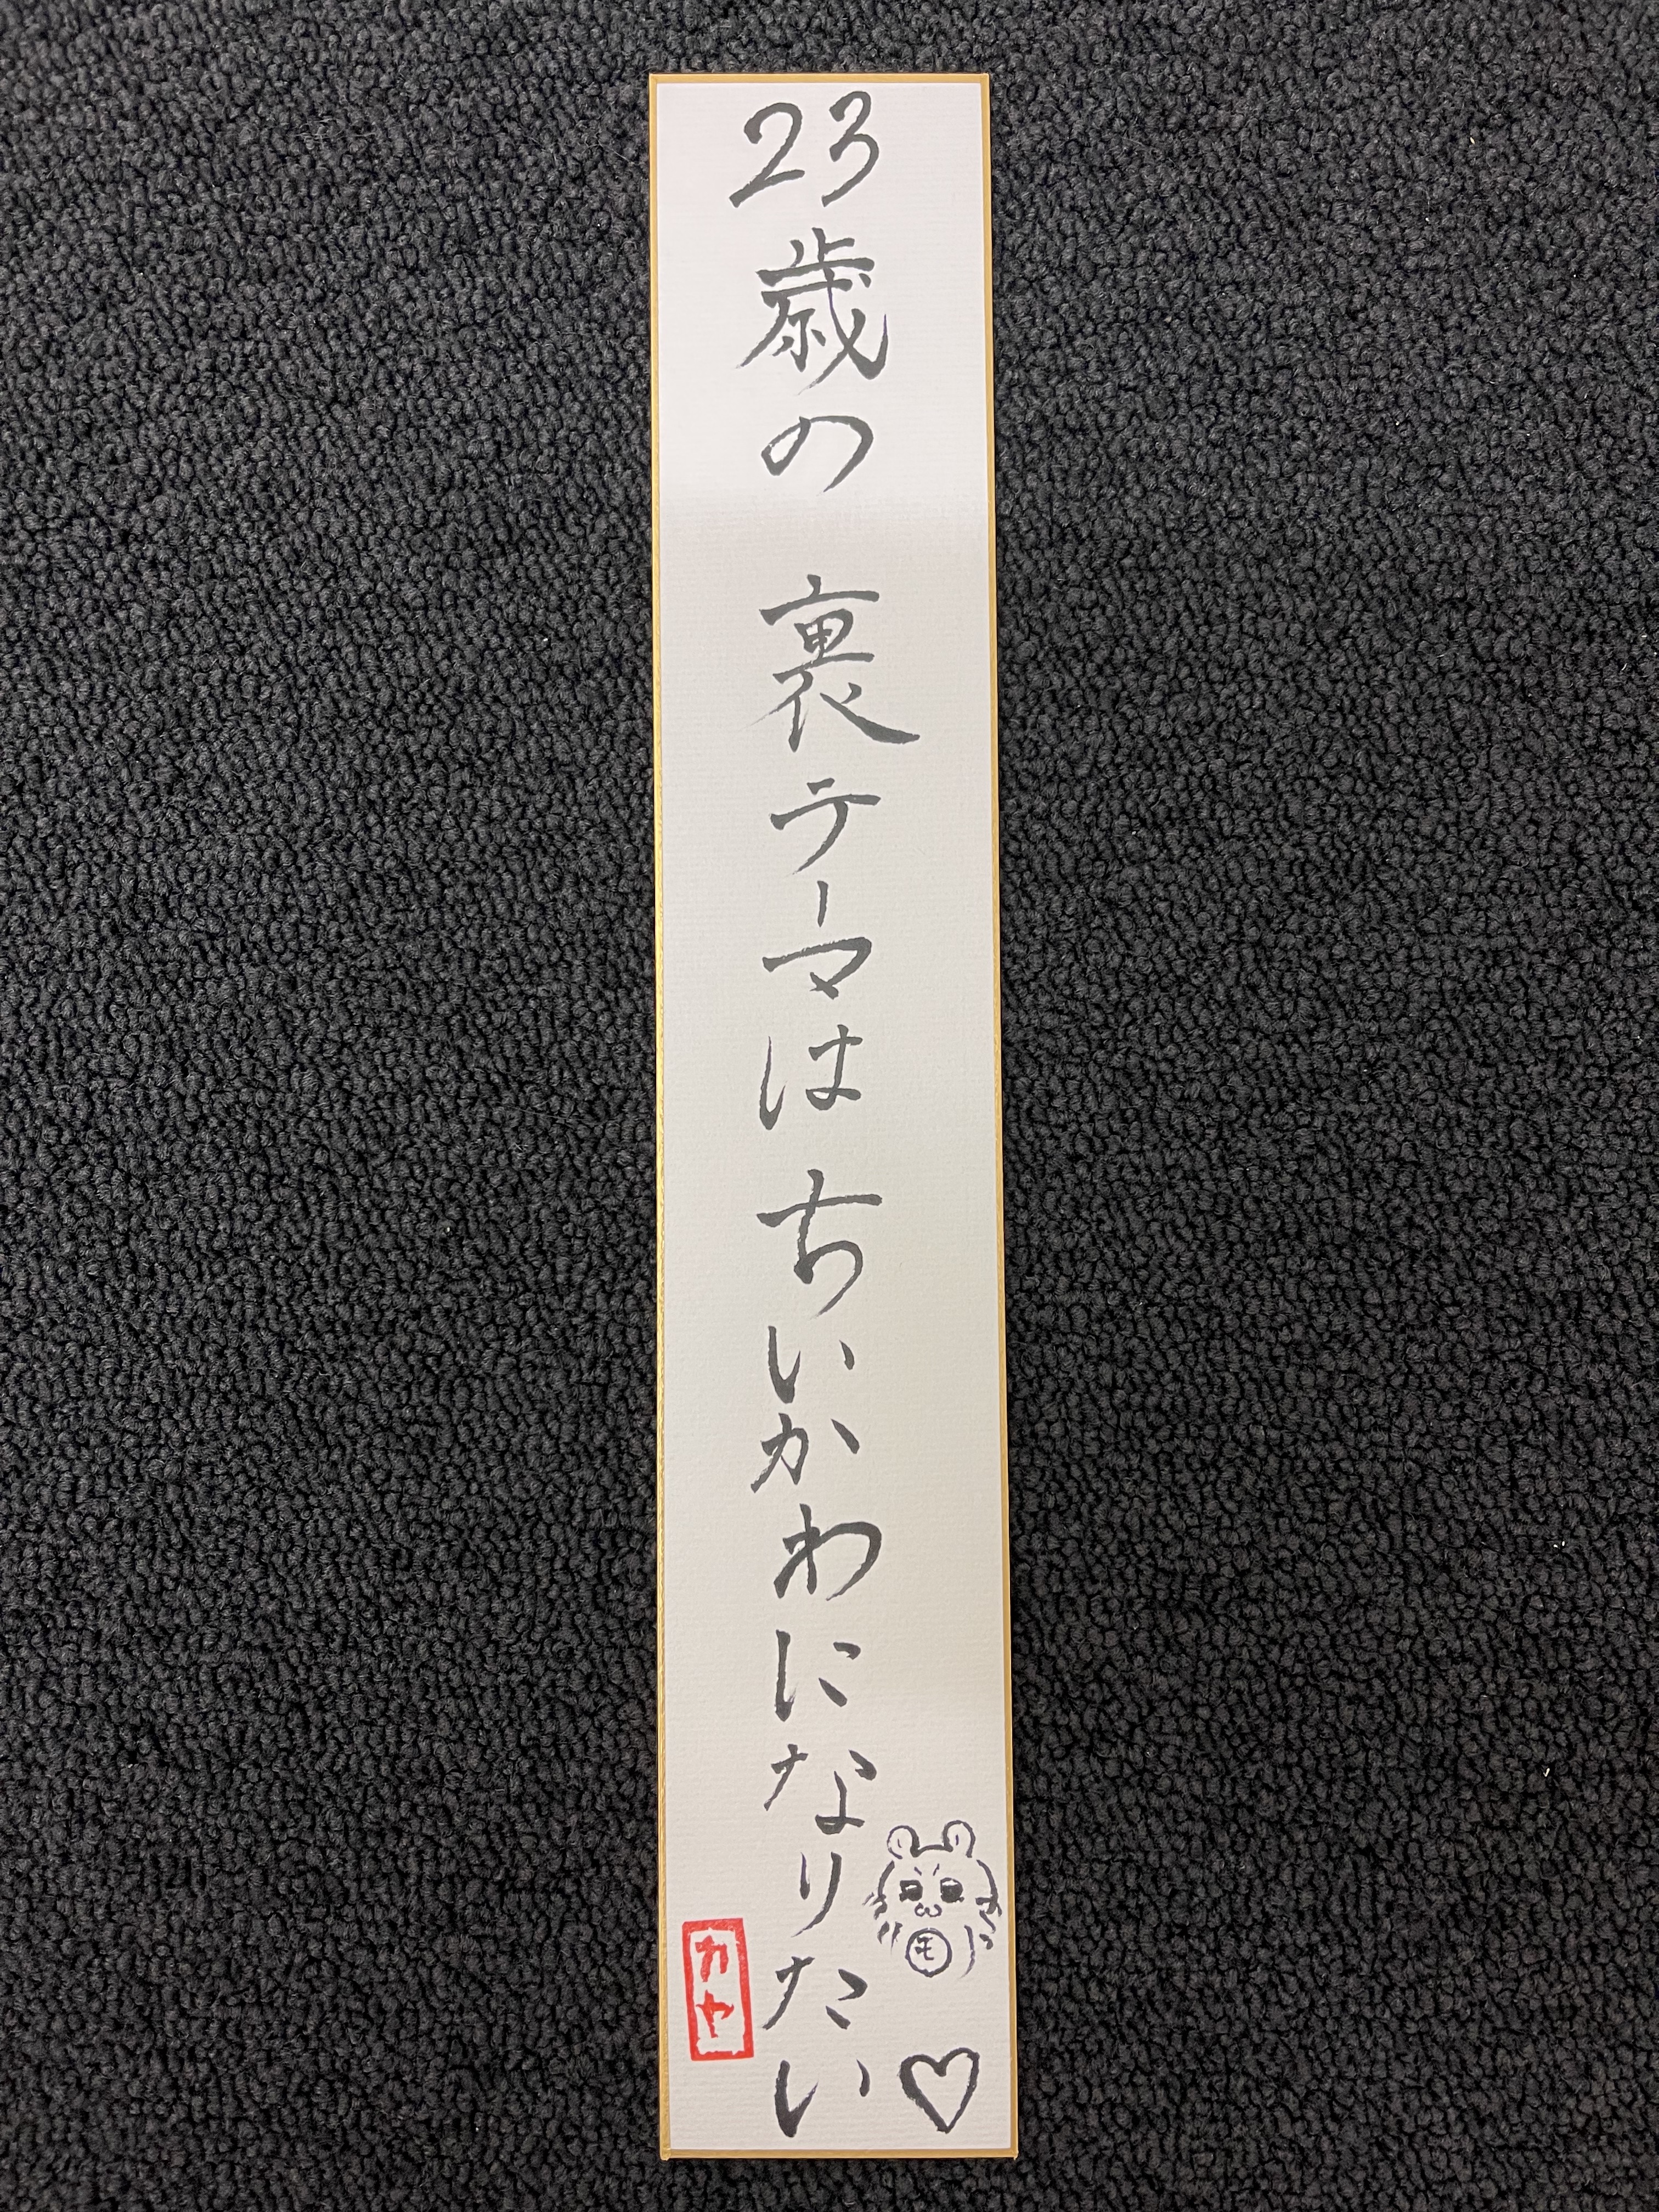 23歳の 裏テーマは ちいかわになりたい♡
モ
カヤ